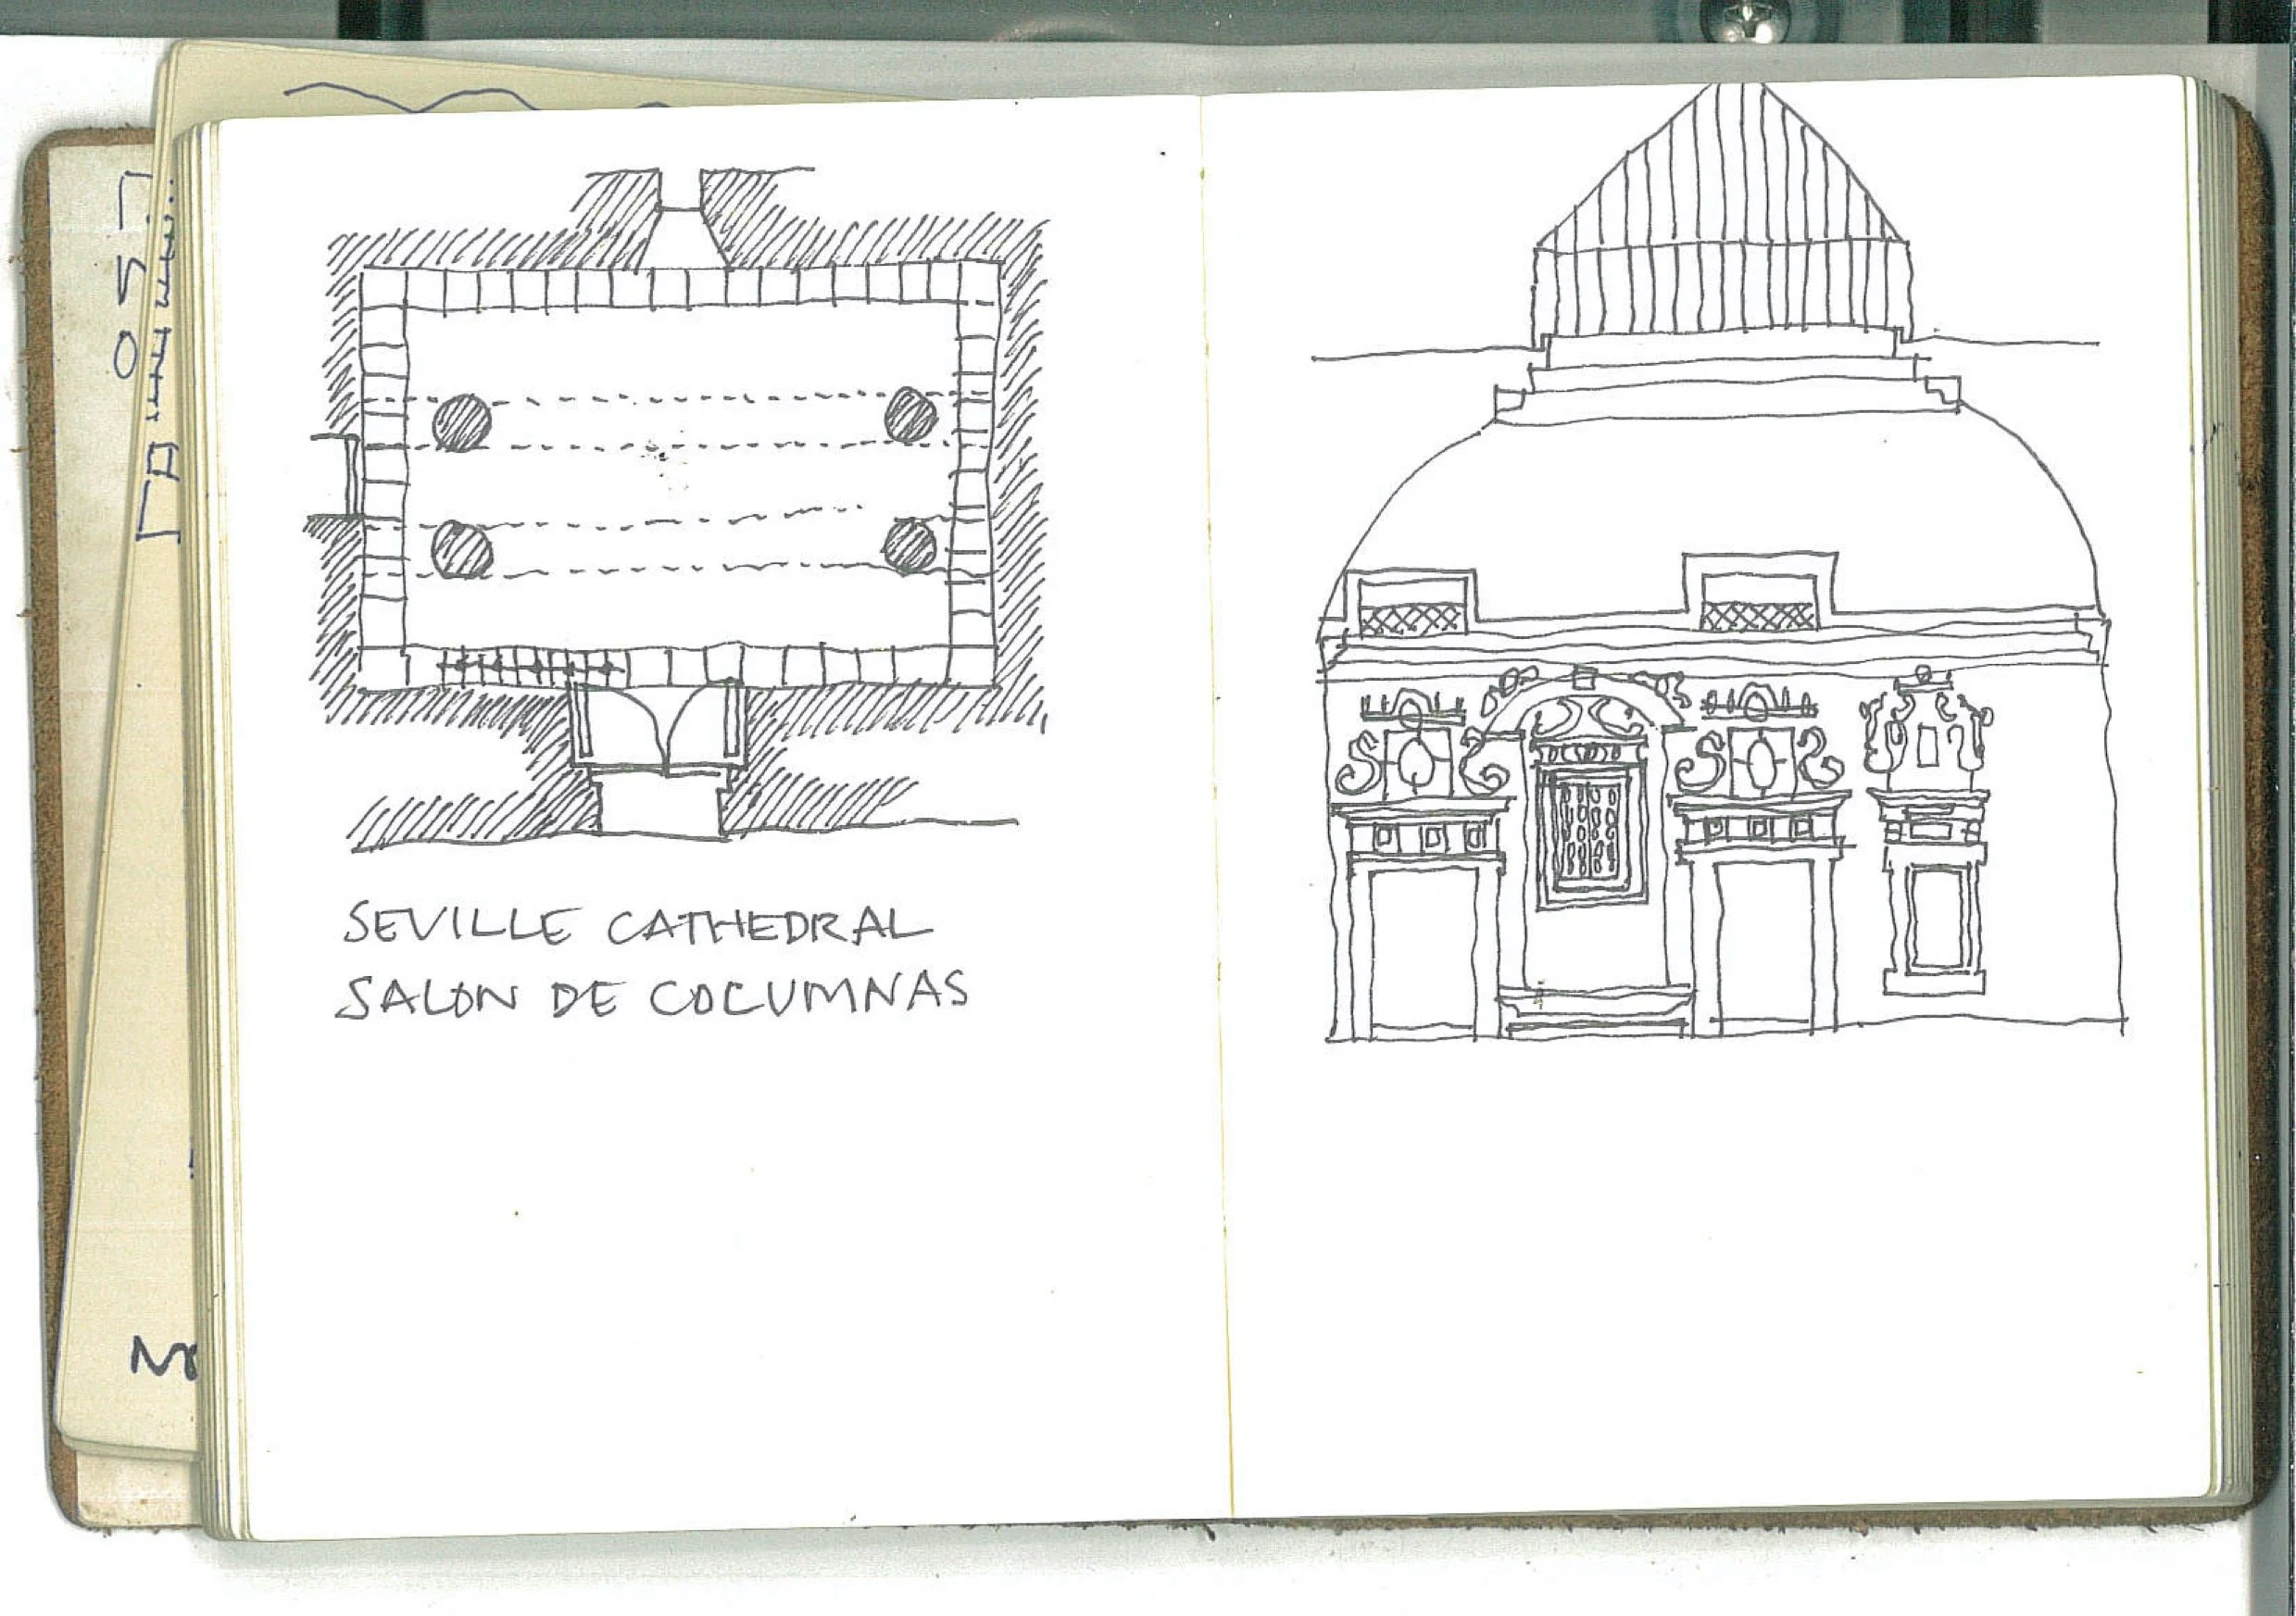 SEVILLE CATHEDRAL
SALON DE COLUMNAS